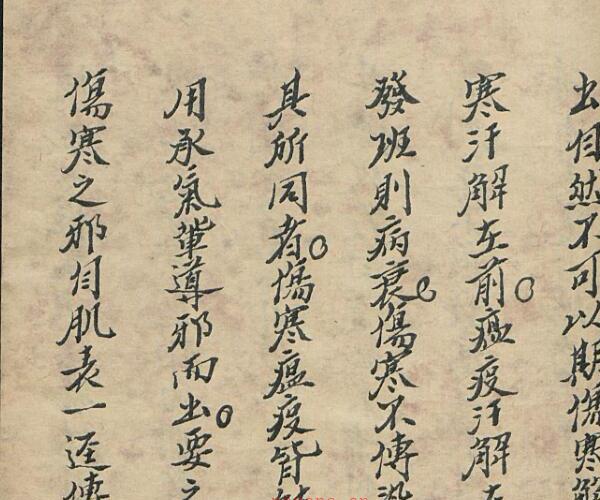 出自然不可以期傷寒解
寒汗解在前。瘟疫汗解在
發班則病衰。傷寒不傳染
其所同者。傷寒瘟疫皆能
用承氣軰導邪而出。要之
傷寒之邪自肌表一逕傳